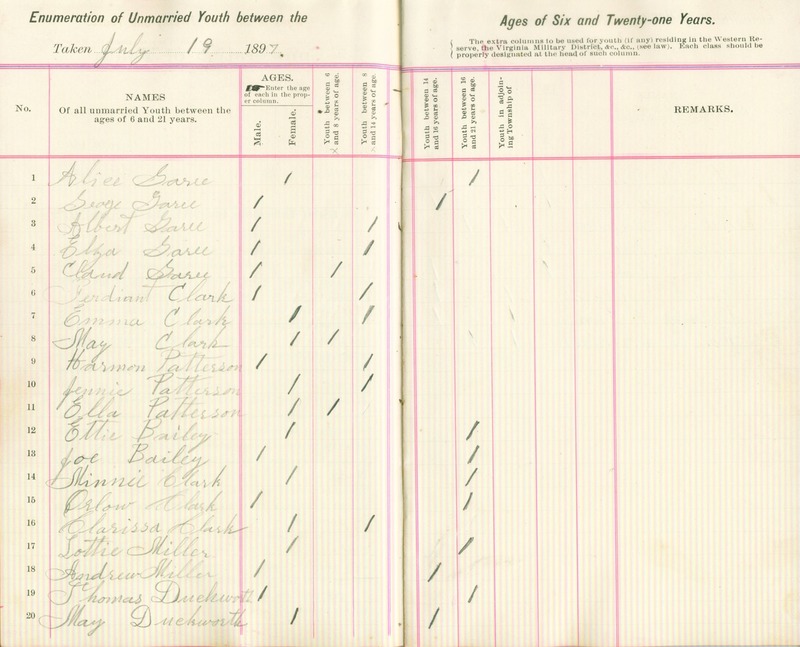 Enumeration of Unmarried Youth between the Ages of Six and Twenty-one Years.
Taken July 19 1897.
The extra columns to be used for youth (if any) residing in the Western Re-
serve, the Virginia Military District, &c., &c., (see law). Each class should be
properly designated at the head of such column.
No.
NAMES
Of all unmarried Youth between the
ages of 6 and 21 years.
AGES.
Enter the age
of each in the prop-
er column.
Male.
Female.
Youth between 6
and 8 years of age.
Youth between 8
and 14 years of age.
Youth between 14
and 16 years of age.
Youth between 16
and 21 years of age.
Youth in adjoin-
ing Township of
REMARKS.
1 Alice Garee / /
2 George Garee / /
3 Albert Garee / /
4 Elza Garee / /
5 Claud Garee / /
6 Ferdiant Clark / /
7 Emma Clark / /
8 May Clark / /
9 Harmon Patterson / /
10 Jennie Patterson / /
11 Ella Patterson / /
12 Ettie Bailey / /
13 Joe Bailey / /
14 Minnie Clark / /
15 Orlow Clark / /
16 Clarissa Clark / /
17 Lottie Miller / /
18 Andrew Miller / /
19 Thomas Duckworth / /
20 May Duckworth / /